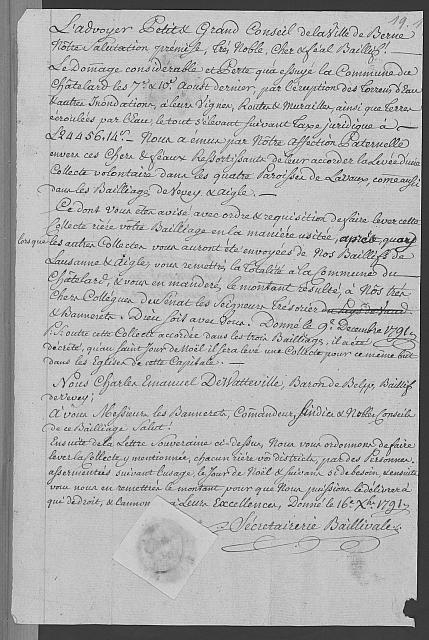 19.
L'advoyer Petit & Grand Conseil de la Ville de Berne
Nôtre Salutation prémise, Très Noble, Cher & féal Baillif!
Le Domage considérable et Perte qu'a essuyé la Commune du
Châtelard les 7.e & 10.e Aoust dernier, par l'éruption des Torrens d'Eau
& autres Inondations, à leurs Vignes, Routes & Murailles, ainsi que Terres
écroulées par l'Eau, le tout s'elevant suivant Taxe juridique à
L 24456.14.s Nous a émus par Nôtre affection Paternelle
envers ces Chers & féaux Ressortissants de leur accorder la Levée d'une
Collecte volontaire dans les quatre Paroisses de Lavaux, come aussi
dans les Bailliages de Vevey & Aigle.
Ce dont vous êtes avisé avec ordre & requisition de faire lever cette
Collecte rière vôtre Bailliage en la manière usitée, après quoy
lorsque les autres Collectes vous auront été envoyées de Nos Baillifs de
Lausanne & Aigle, vous remettrés la totalité à la Commune du
Châtelard, & vous en manderés le montant résulté, à Nos très
Chers Collegues du Sénat les Seigneurs Trésorier du Pays de Vaud
& Bannerets. Dieu soit avec Vous. Donné le 9.e Decembre 1791.
P.S. outre cette Collecte accordée dans les trois Bailliages, il a été
décrété, qu'au Saint Jour de Noël il sera levé une Collecte pour ce même but
dans les Eglises de cette Capitale.
Nous Charles Emanuel De Watteville, Baron de Belp, Baillif
de Vevey;
à Vous Messieurs les Bannerets, Comandeur, Sindics & Nobles Conseils
de ce Bailliage Salut!
Ensuite de la Lettre Souveraine ci-dessus, Nous vous ordonnons de faire
lever la Collecte y mentionnée, chacun rière vos districts, par des Personnes
assermentées suivant l'usage, le Jour de Noël & suivans si de besoin, & ensuite
vous nous en remettrés le montant pour que Nous puissions le délivrer à
qui de droit, & l'annoncer à Leurs Excellences, Donné le 16.e Xbre 1791.
Sécrétairerie Baillivale.